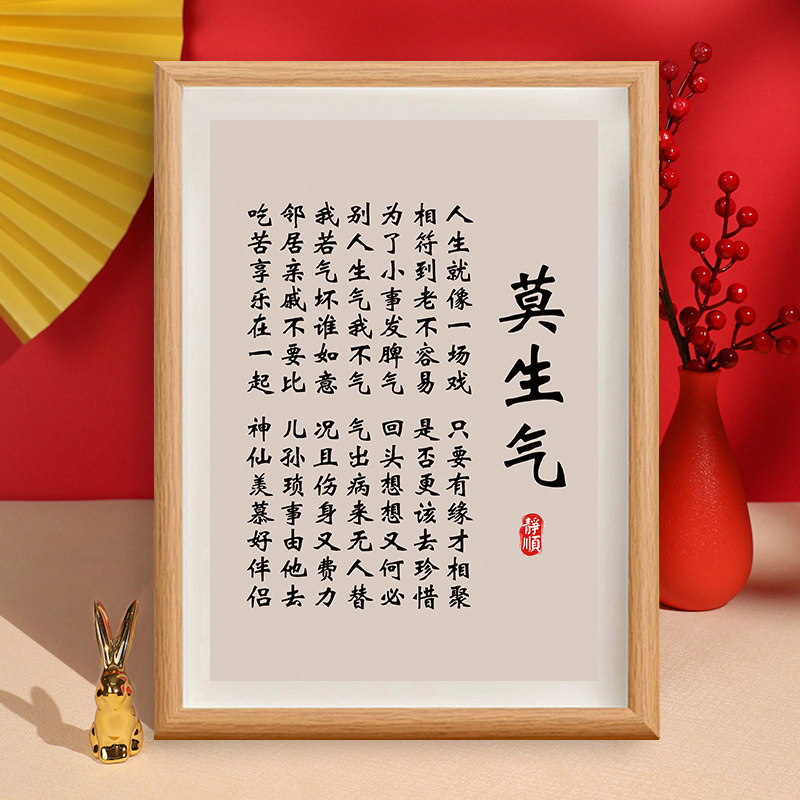 莫生气
静顺
人生就像一场戏 只要有缘才相聚
相符到老不容易 是否更该去珍惜
为了小事发脾气 回头想想又何必
别人生气我不气 气出病来无人替
我若气坏谁如意 况且伤身又费力
邻居亲戚不要比 儿孙琐事由他去
吃苦享乐在一起 神仙羡慕好伴侣